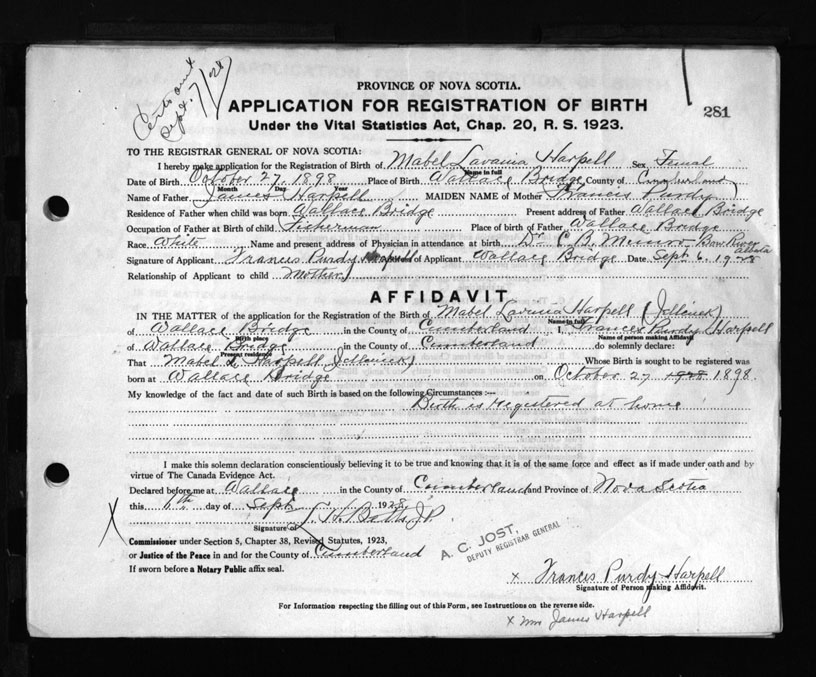 Sept. 7/28
PROVINCE OF NOVA SCOTIA.
APPLICATION FOR REGISTRATION OF BIRTH
281
Under the Vital Statistics Act, Chap. 20, R. S. 1923.
TO THE REGISTRAR GENERAL OF NOVA SCOTIA:
I hereby make application for the Registration of Birth of Mabel Lavainia Harpell Sex Femal
Name in full
Date of Birth October 27, 1898 Place of Birth Wallace Bridge County of Cumberland
Month Day Year
Name of Father James Harpell MAIDEN NAME of Mother Francis Purdy
Residence of Father when child was born Wallace Bridge Present address of Father Wallace Bridge
Occupation of Father at Birth of child Fisherman Place of birth of Father Wallace Bridge
Race White Name and present address of Physician in attendance at birth Dr. C. B. Munro Bow River Alberta
Signature of Applicant Frances Purdy Harpell of Applicant Wallace Bridge Date Sept 6, 1928
Relationship of Applicant to child Mother
AFFIDAVIT
IN THE MATTER of the application for the Registration of the Birth of Mabel Lavinia Harpell (Jellinek)
Name in full
of Wallace Bridge in the County of Cumberland, I, Frances Purdy Harpell
Birth place Name of person making Affidavit
of Wallace Bridge in the County of Cumberland do solemnly declare:
Present residence
That Mabel L Harpell (Jellinek) Whose Birth is sought to be registered was
born at Wallace Bridge on October 27 1928 1898.
My knowledge of the fact and date of such Birth is based on the following Circumstances:—
Birth is registered at home
I make this solemn declaration conscientiously believing it to be true and knowing that it is of the same force and effect as if made under oath and by
virtue of The Canada Evidence Act.
Declared before me at Wallace in the County of Cumberland and Province of Nova Scotia
this 6th day of Sept 1928
Signature of J.P.
X
Commissioner under Section 5, Chapter 38, Revised Statutes, 1923,
or Justice of the Peace in and for the County of Cumberland
If sworn before a Notary Public affix seal.
A. C. JOST,
DEPUTY REGISTRAR GENERAL
x Frances Purdy Harpell
Signature of Person making Affidavit.
For Information respecting the filling out of this Form, see Instructions on the reverse side.
x Mrs James Harpell